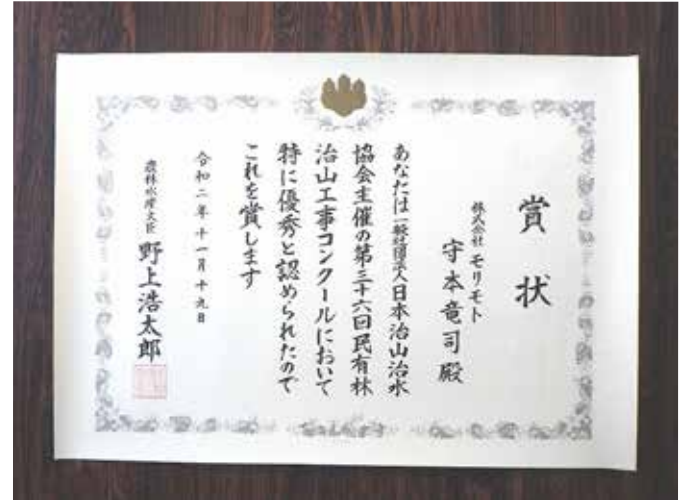 賞状
株式会社 モリモト
守本竜司殿
あなたは一般社団法人日本治山治水
協会主催の第三十六回民有林
治山工事コンクールにおいて
特に優秀と認められたので
これを賞します
令和二年十一月十九日
農林水産大臣 野上浩太郎